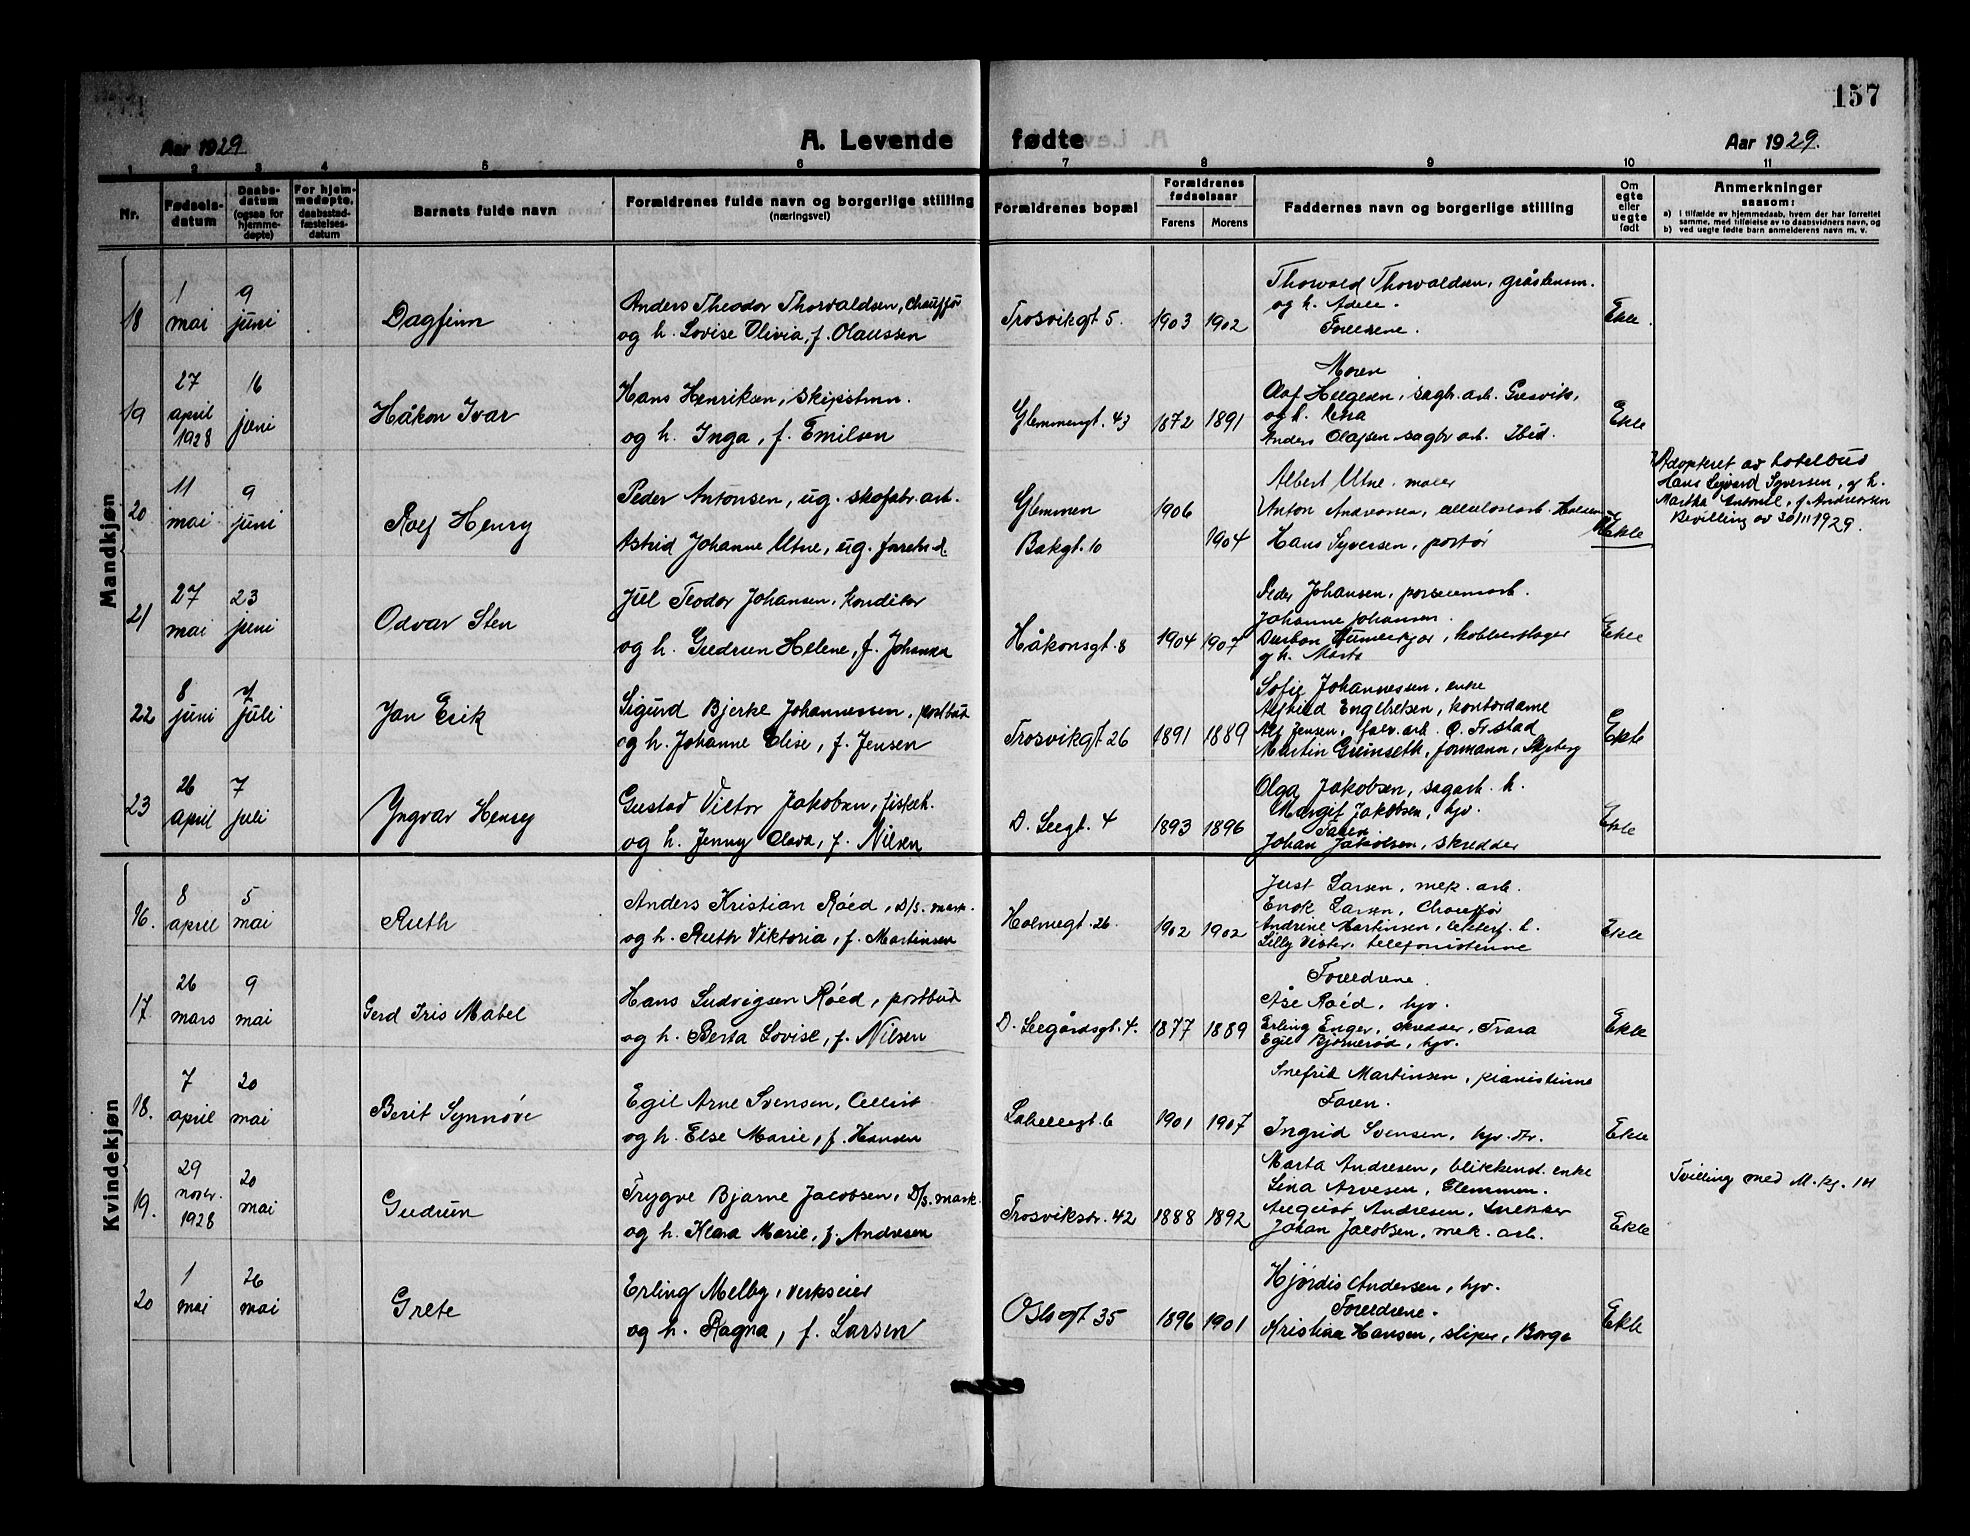 157
Aar 1929
A. Levende fødte
Aar 1929.
1 2 3 4 5 6 7 8 9 10 11
Nr.
Fødsels-
datum
Daabs-
datum
(ogsaa for
hjemme-
døpte)
For hjem-
medøpte,
daabsstad-
fæstelses-
datum
Barnets fulde navn
Forældrenes fulde navn og borgerlige stilling
(næringsvei)
Forældrenes bopæl
Forældrenes
fødselsaar
Farens Morens
Faddernes navn og borgerlige stilling
Om
egte
eller
uegte
født
Anmerkninger
saasom:
a) i tilfælde av hjemmedaab, hvem der har forrettet
samme, med tilføielse av to daabsvidners navn, og
b) ved uegte fødte barn anmelderens navn m. v.
Mandkjøn
18
1
mai
9
juni
Dagfinn
Anders Theodor Thorvaldsen, Chauffør
og h. Lovise Olivia, f. Olaussen
Trosvikgt 5.
1903 1902
Thorvald Thorvaldsen, gråstensm.
og h. Adele.
Foreldrene.
Ekte
19
27
april
1928
16
juni
Håkon Ivar
Hans Henriksen, skipstmn.
og h. Inga, f. Emilsen
Glemmengt. 43
1872 1891
Moren
Olaf Helgesen, sagbr. arb. Gresvik,
og h. Lina
Anders Olafsen sagbr arb. Ibid.
Ekte
20
11
mai
9
juni
Rolf Henry
Peder Antonsen, ug. skofabr. arb.
Astrid Johanne Utne, ug. forretn.d.
Glemmen
Bakgt. 10
1906
1904
Albert Utne. maler
Anton Andreassen, cellulosearb. Holmen
Hans Syversen, portør
Uekte
Adopteret av hotelbud
Hans Sigvard Syversen, og h.
Martha Antonie, f. Andreassen
Bevilling av 30/11 1929.
21
27
mai
23
juni
Odvar Sten
Jul Teodor Johansen, konditor
og h. Gudrun Helene, f. Johansen
Håkonsgt. 8
1904 1907
Peder Johansen, porselensarb.
Johanne Johansen.
kobberslager
og h. Marta
Ekte
22
8
juni
7
juli
Jan Erik
Sigurd Bjerke Johannessen, postbud
og h. Johanne Elise, f. Jensen
Trosvikgt 26
1891 1889
Sofie Johannessen, enke
Engebretsen, kontordame
Alf Jensen, galv. arb. Ø. Fr.stad
Martin Grimseth, formann, Skjeberg
Ekte
23
26
april
7
juli
Yngvar Henry
Gustav Victor Jakobsen, fiskeh.
og h. Jenny Clara, f. Nilsen
D. Leegt. 4
1893 1896
Olga Jakobsen, sagarb. h.
Margit Jakobsen, hjv.
Faren
Johan Jakobsen, skredder
Ekte
Kvindekjøn
16.
8
april
5
mai
Ruth
Anders Kristian Røed, D/s. mask.
og h. Ruth Viktoria, f. Martinsen
Holmegt. 26
1902 1902
Just Larsen, mek. arb.
Enok Larsen, Chauffør
Andrine Martinsen, h.
Lilly telefonistinne
Ekte
17.
26
mars
9
mai
Gerd Iris Mabel
Hans Ludvigsen Røed, postbud
og h. Berta Lovise, f. Nilsen
D. Leegårdsgt. 4.
1877 1889
Foreldrene
Åse Røed, hjv.
Erling Enger, skredder, Trara
Egil Bjørnerød, hjv.
Ekte
18.
7
april
20
mai
Berit Synnøve
Egil Arne Svensen, Cellist
og h. Else Marie, f. Hansen
Labellegt. 6
1901 1907
Snefrid Martinsen, pianistinne
Faren.
Ingrid Svensen, hjv. dr.
Ekte
19.
29
novbr.
1928
20
mai
Gudrun
Trygve Bjarne Jacobsen, D/s. mask.
og h. Klara Marie, f. Andresen
Trosvikstr. 42
1888 1892
Marta Andresen, blikkensl. enke
Lina Arvesen, Glemmen.
August Andresen, snekker
Johan Jacobsen, mek. arb.
Ekte
Tvilling med M.kj. 14
20
1
mai
26
mai
Grete
Erling Melby, Verkseier
og h. Ragna, f. Larsen
Oslogt 35
1896 1901
Hjørdis Andersen, hjv.
Foreldrene.
Kristian Hansen, sliper, Borge
Ekte